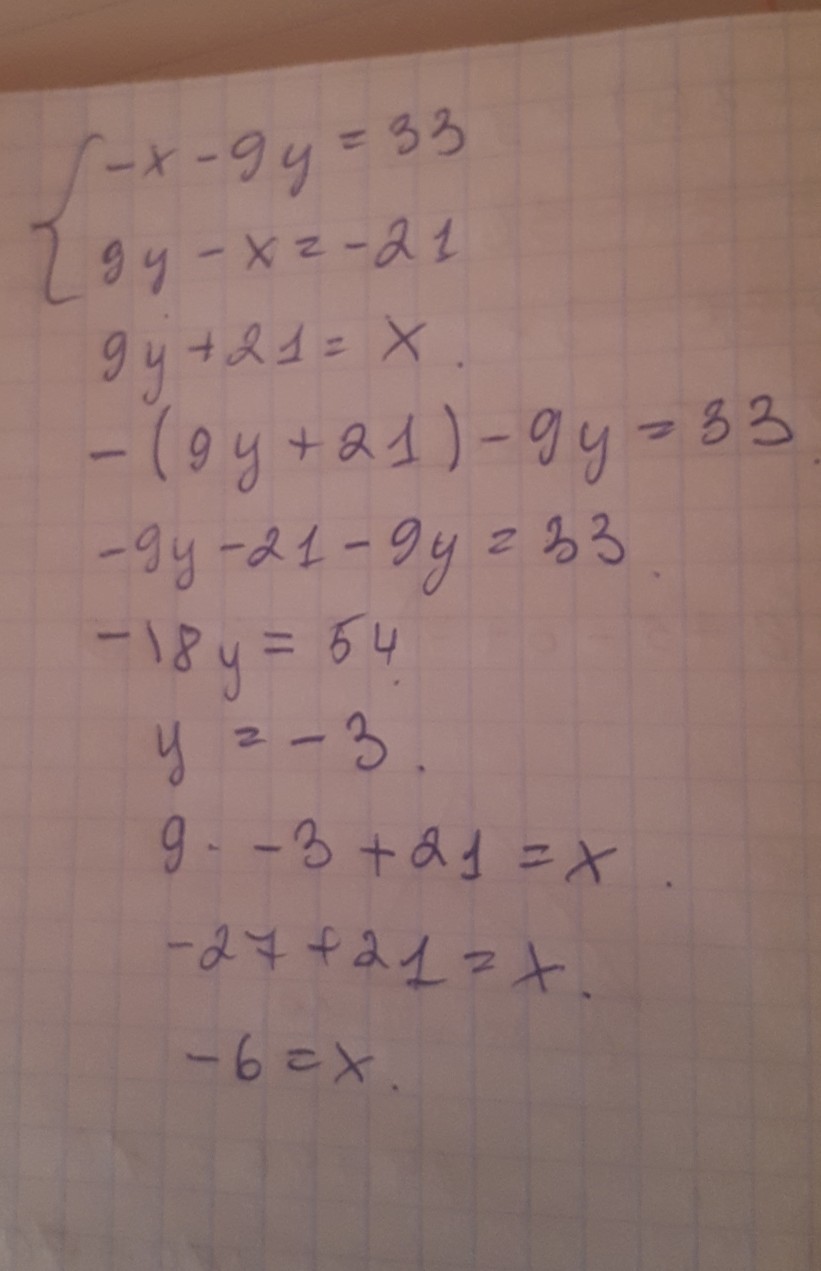 { -x - 9y = 33
9y - x = -21
9y + 21 = x.
-(9y + 21) - 9y = 33.
-9y - 21 - 9y = 33.
-18y = 54.
y = -3.
9 · -3 + 21 = x.
-27 + 21 = x.
-6 = x.